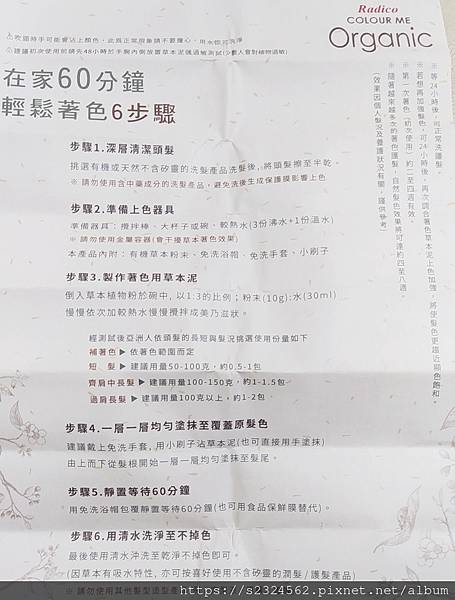 Radico
COLOUR ME
Organic
⚠建議初次使用前請先48小時於手腕內側放置草本泥做過敏測試(少數人會對植物過敏)
在家60分鐘
輕鬆著色6步驟
步驟1.深層清潔頭髮
挑選有機或天然不含矽靈的洗髮產品洗髮後,將頭髮擦至半乾。
※ 請勿使用含中藥成分的洗髮產品,避免洗後生成保護膜影響上色
步驟2.準備上色器具
準備器具:攪拌棒、大杯子或碗、較熱水(3份沸水+1份溫水)
※ 請勿使用金屬容器(會干擾草本著色效果)
本產品內附:有機草本粉末、免洗浴帽、免洗手套、小刷子
步驟3.製作著色用草本泥
倒入草本植物粉於碗中,以1:3的比例;粉末(10g):水(30ml)
慢慢依次加較熱水慢慢攪拌成美乃滋狀。
經測試後亞洲人依頭髮的長短與髮況挑選使用份量如下
補著色 ▶ 依著色範圍而定
短 髮 ▶ 建議用量50-100克,約0.5-1包
齊肩中長髮 ▶ 建議用量100-150克,約1-1.5包
過肩長髮 ▶ 建議用量100克以上,約1-2包
步驟4.一層一層均勻塗抹至覆蓋原髮色
建議戴上免洗手套,用小刷子沾草本泥(也可直接用手塗抹)
由上而下從髮根開始一層一層均勻塗抹至髮尾。
步驟5.靜置等待60分鐘
用免洗浴帽包覆靜置等待60分鐘(也可用食品保鮮膜替代)。
步驟6.用清水洗淨至不掉色
最後使用清水沖洗至乾淨不掉色即可。
(因草本有吸水特性,亦可按喜好使用不含矽靈的潤髮/護髮產品)
※ 請勿使用其他髮型造型產
※ 等24小時後,可正常洗護髮。
※ 若想再加強髮色,可24小時後,再次調合著色草本泥上色加強,將使髮色更趨近顯色飽和。
※ 第一次著色(初次使用)約二至四週有效。
※ 隨著越來越多次的著色護髮,自然髮色效果將可達約四至八週。
(效果因個人髮況及養護狀況有關,謹供參考)
https://s2324562.pixnet.net/album